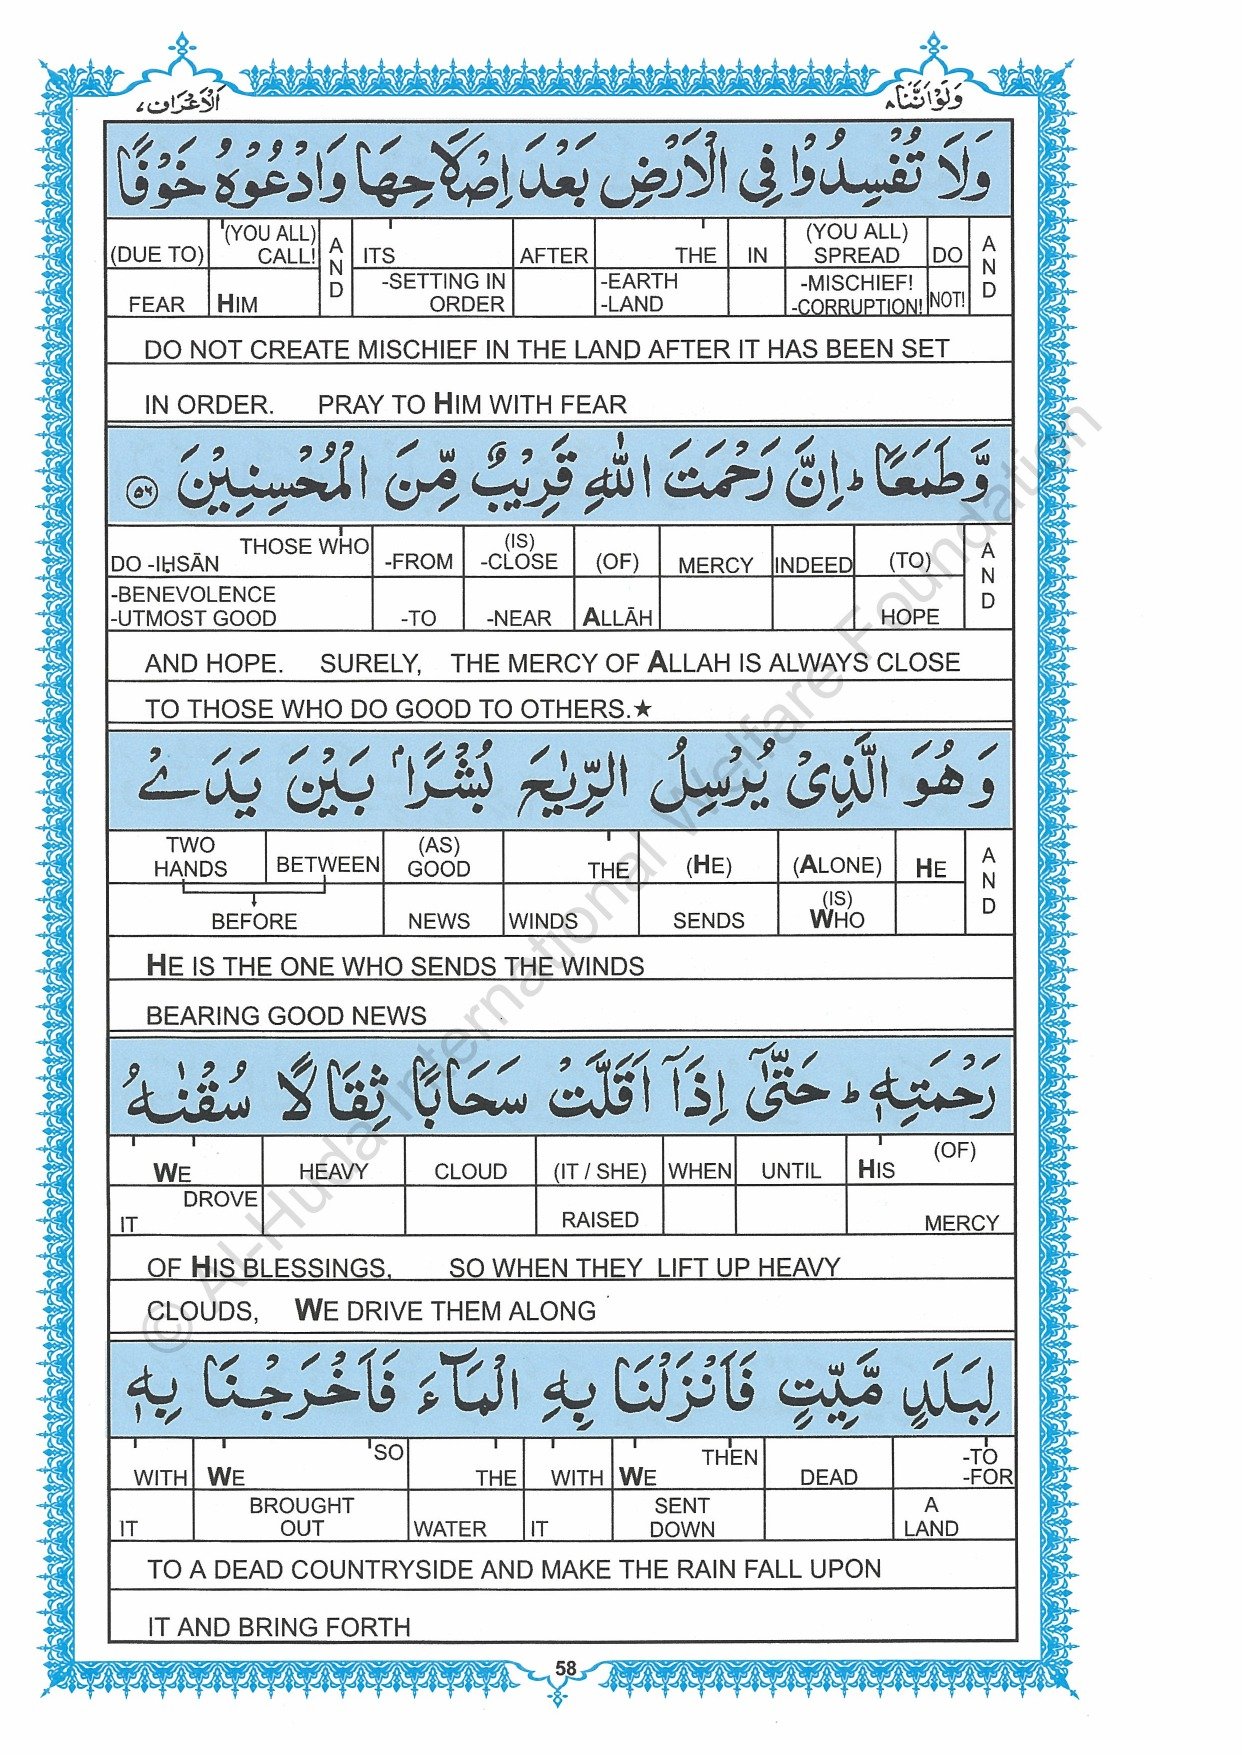 وَلَوْاَنَّنَا ۸
اَلْاَعْرَاف ۷
وَلَا تُفْسِدُوْا فِی الْاَرْضِ بَعْدَ اِصْلَاحِهَا وَادْعُوْهُ خَوْفًا
(DUE TO) (YOU ALL) CALL! AND ITS AFTER THE IN (YOU ALL) SPREAD DO AND
FEAR HIM -SETTING IN ORDER -EARTH -LAND -MISCHIEF! -CORRUPTION! NOT!
DO NOT CREATE MISCHIEF IN THE LAND AFTER IT HAS BEEN SET
IN ORDER. PRAY TO HIM WITH FEAR
وَّطَمَعًا ؕ اِنَّ رَحْمَتَ اللّٰهِ قَرِیْبٌ مِّنَ الْمُحْسِنِیْنَ ۵۶
THOSE WHO DO -IḤSĀN -FROM (IS) -CLOSE (OF) MERCY INDEED (TO) AND
-BENEVOLENCE -UTMOST GOOD -TO -NEAR ALLĀH HOPE
AND HOPE. SURELY, THE MERCY OF ALLAH IS ALWAYS CLOSE
TO THOSE WHO DO GOOD TO OTHERS.★
وَهُوَ الَّذِیْ یُرْسِلُ الرِّیٰحَ بُشْرًاۢ بَیْنَ یَدَیْ
TWO HANDS BETWEEN (AS) GOOD THE (HE) (ALONE) HE AND
BEFORE NEWS WINDS SENDS (IS) WHO
HE IS THE ONE WHO SENDS THE WINDS
BEARING GOOD NEWS
رَحْمَتِهٖ ؕ حَتّٰۤی اِذَاۤ اَقَلَّتْ سَحَابًا ثِقَالًا سُقْنٰهُ
WE HEAVY CLOUD (IT / SHE) WHEN UNTIL HIS (OF)
DROVE IT RAISED MERCY
OF HIS BLESSINGS, SO WHEN THEY LIFT UP HEAVY
CLOUDS, WE DRIVE THEM ALONG
لِبَلَدٍ مَّیِّتٍ فَاَنْزَلْنَا بِهِ الْمَآءَ فَاَخْرَجْنَا بِهٖ
WITH WE SO THE WITH WE THEN DEAD -TO -FOR
IT BROUGHT OUT WATER IT SENT DOWN A LAND
TO A DEAD COUNTRYSIDE AND MAKE THE RAIN FALL UPON
IT AND BRING FORTH
58
© Al-Huda International Welfare Foundation